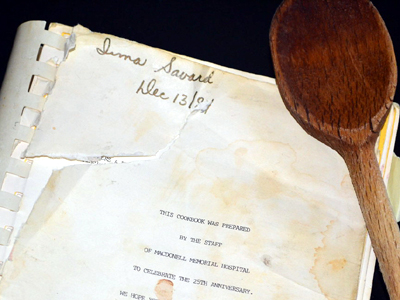 Irma Savard
Dec 13/91
THIS COOKBOOK WAS PREPARED
BY THE STAFF
OF MACDONELL MEMORIAL HOSPITAL
TO CELEBRATE THE 25TH ANNIVERSARY.
WE HOPE